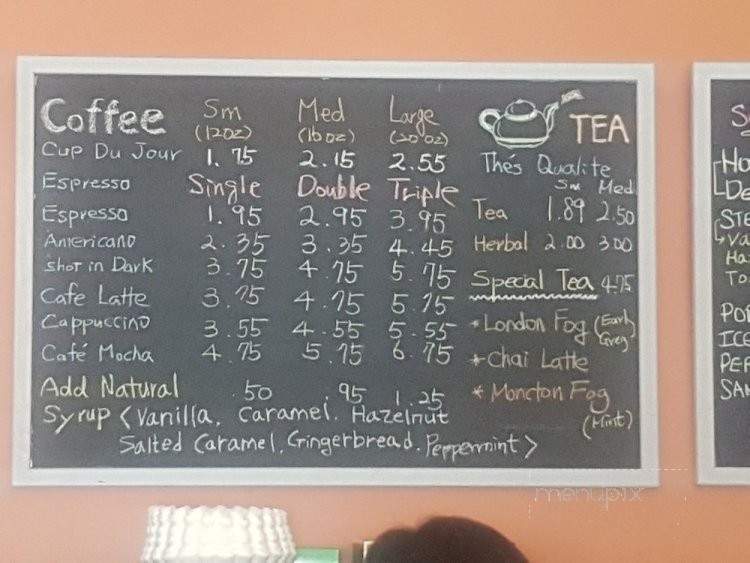 Coffee Sm Med Large
(12oz) (16oz) (20oz)
Cup Du Jour 1.75 2.15 2.55
Espresso Single Double Triple
Espresso 1.95 2.95 3.95
Americano 2.35 3.35 4.45
Shot in Dark 3.75 4.75 5.75
Cafe Latte 3.75 4.75 5.75
Cappuccino 3.55 4.55 5.55
Café Mocha 4.75 5.75 6.75
Add Natural .50 .95 1.25
Syrup < Vanilla, Caramel, Hazelnut
Salted Caramel, Gingerbread, Peppermint >
TEA
Thés Qualite
Sm Med
Tea 1.89 2.50
Herbal 2.00 3.00
Special Tea 4.75
* London Fog (Earl
Greg)
* Chai Latte
* Moncton Fog
(Mint)
ICE
menupix